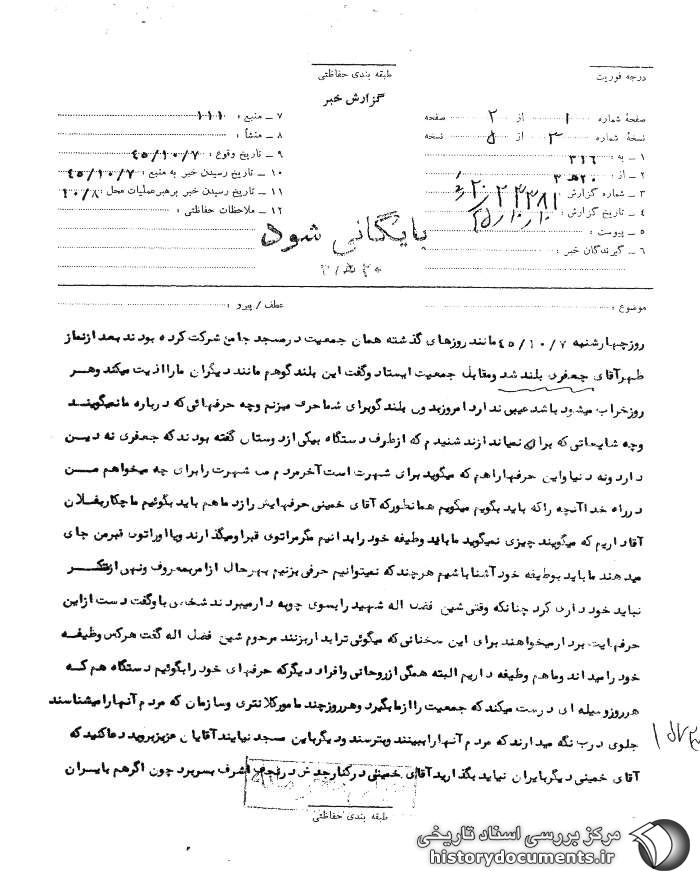 درجه فوریت
طبقه بندی حفاظتی
گزارش خبر
صفحهٔ شماره ۱ از ۲ صفحه
نسخهٔ شماره ۳ از ۵ نسخه
۱ ـ به : ۳۱۶
۲ ـ از : ۲۰هـ ۳
۳ ـ شماره گزارش
۴ ـ تاریخ گزارش :
۵ ـ پیوست :
۶ ـ گیرندگان خبر :
۷ ـ منبع : ۱۱۱
۸ ـ منشأ :
۹ ـ تاریخ وقوع : ۴۵/۱۰/۷
۱۰ ـ تاریخ رسیدن خبر به منبع : ۴۵/۱۰/۷
۱۱ ـ تاریخ رسیدن خبر برهبرعملیات محل : ۱۰/۸
۱۲ ـ ملاحظات حفاظتی :
بایگانی شود
موضوع :
عطف / پیرو :
روزچهارشنبه ۴۵/۱۰/۷ مانند روزهای گذشته همان جمعیت درمسجد جامع شرکت کرده بودند بعد ازنماز
ظهرآقای جعفری بلند شد ومقابل جمعیت ایستاد وگفت این بلند گوهم مانند دیگران مارا اذیت میکند وهر
روزخراب میشود باشد عیبی ندارد امروزبدون بلند گوبرای شما حرف میزنم وچه حرفهائی که درباره مانمیگویند
وچه شایعاتی که برای نمیاندازند شنیدم که ازطرف دستگاه بیکی ازدوستان گفته بودند که جعفری نه دین
دارد ونه دنیا واین حرفهاراهم که میگوید برای شهرت است آخرمردم من شهرت را برای چه میخواهم من
درراه خدا آنچه راکه باید بگویم میگویم همانطورکه آقای خمینی حرفهایش رازد ماهم باید بگوئیم ماچکاربفلان
آقاداریم که میگویند چیزی نمیگوید ماباید وظیفه خود رابدانیم مگرمراتوی قبراومیگذارند ویااوراتوی قبرمن جای
میدهند ماباید بوظیفه خود آشنا باشیم هرچند که نمیتوانیم حرفی بزنیم بهرحال ازامربمعروف ونهی ازمنکر
نباید خود داری کرد چنانکه وقتی شیخ فضل اله شهید رابسوی چوبه دارمیبردند شخصی باوگفت دست ازاین
حرفهایت بردارمیخواهند برای این سخنانی که میگوئی ترابدار بزنند مرحوم شیخ فضل اله گفت هرکس وظیفه
خود رامیداند وماهم وظیفه داریم البته همگی ازروحانی وافراد دیگرکه حرفهای خود رابگوئیم دستگاه هم که
هرروزوسیله ای درست میکند که جمعیت راازمابگیرد وهرروزچند مامورکلانتری وسازمان که مردم آنهارامیشناسند
جلوی درب نگه میدارند که مردم آنهاراببینند وبترسند ودیگرباین مسجد نیایند آقایان عزیزبروید دعاکنید که
آقای خمینی دیگربایران نیاید بگذارید آقای خمینی درکنارجدش درنجف اشرف بسربرد چون اگرهم بایسران
طبقه بندی حفاظتی
مرکز بررسی اسناد تاریخی
historydocuments.ir